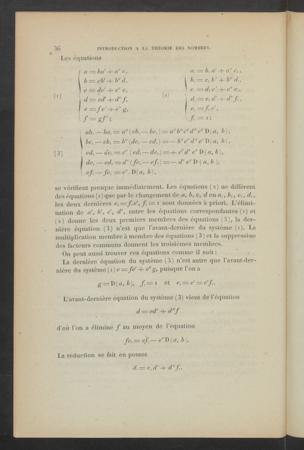 36 INTRODUCTION A LA THÉORIE DES NOMBRES.
Les équations
[1]
a = ba' + a″ c,
b = cb' + b″ d,
c = dc' + c″ e,
d = ed' + d″ f,
e = fe' + e″ g,
f = gf';
[2]
a, = b, a' + a″ c,,
b, = c, b' + b″ d,,
c, = d, c' + c″ e,,
d, = e, d' + d″ f,,
e, = f, e',
f, = 1;
[3]
ab, — ba, = a″ (cb, — bc,) = a″ b″ c″ d″ e″ D( a, b),
bc, — cb, = b″ (dc, — cd,) = — b″ c″ d″ e″ D( a, b),
cd, — dc, = c″ (ed, — de,) = c″ d″ e″ D( a, b),
de, — ed, = d″ (fe, — ef,) = — d″ e″ D( a, b),
ef, — fe, = e″. D( a, b),
se vérifient presque immédiatement. Les équations (2) ne diffèrent
des équations (1) que par le changement de a, b, c, d en a,, b,, c,, d,,
les deux dernières e, = f, e', f, = 1 sont données à priori. L'élimi-
nation de a', b', c', d', entre les équations correspondantes (1) et
(2) donne les deux premiers membres des équations (3), la der-
nière équation (3) n'est que l'avant-dernière du système (1). La
multiplication membre à membre des équations (3) et la suppression
des facteurs communs donnent les troisièmes membres.
On peut aussi trouver ces équations comme il suit :
La dernière équation du système (3) n'est autre que l'avant-der-
nière du système (1) e = fe' + e″ g, puisque l'on a
g = D( a, b), f, = 1 et e, = e' = e' f,.
L'avant-dernière équation du système (3) vient de l'équation
d = ed' + d″ f
d'où l'on a éliminé f au moyen de l'équation
fe, = ef, — e″ D( a, b).
La réduction se fait en posant
d, = e, d' + d″ f,.